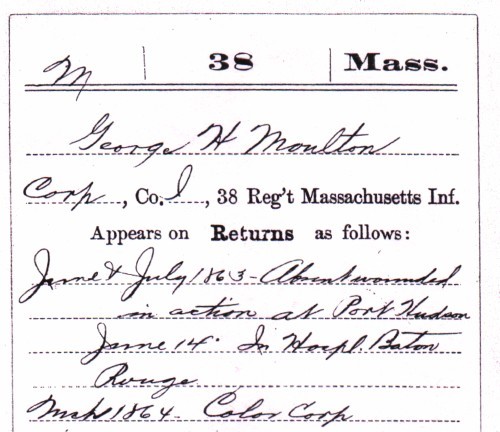 M 38 Mass.
George H Moulton
Corp, Co. I, 38 Reg't Massachusetts Inf.
Appears on Returns as follows:
June & July 1863 - Absent wounded
in action at Port Hudson
June 14. In Hospl. Baton
Rouge
Mch 1864. Color Corp